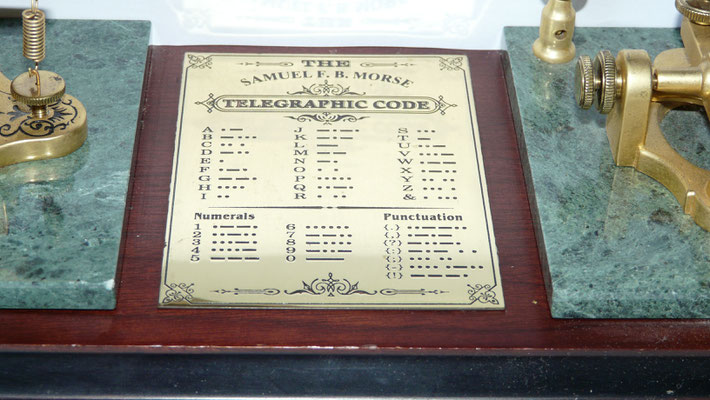 THE
SAMUEL F. B. MORSE
TELEGRAPHIC CODE
A J S
B K T
C L U
D M V
E N W
F O X
G P Y
H Q Z
I R &
Numerals Punctuation
1 6 (.)
2 7 (,)
3 8 (?)
4 9 (:)
5 0 (;)
(-)
(!)